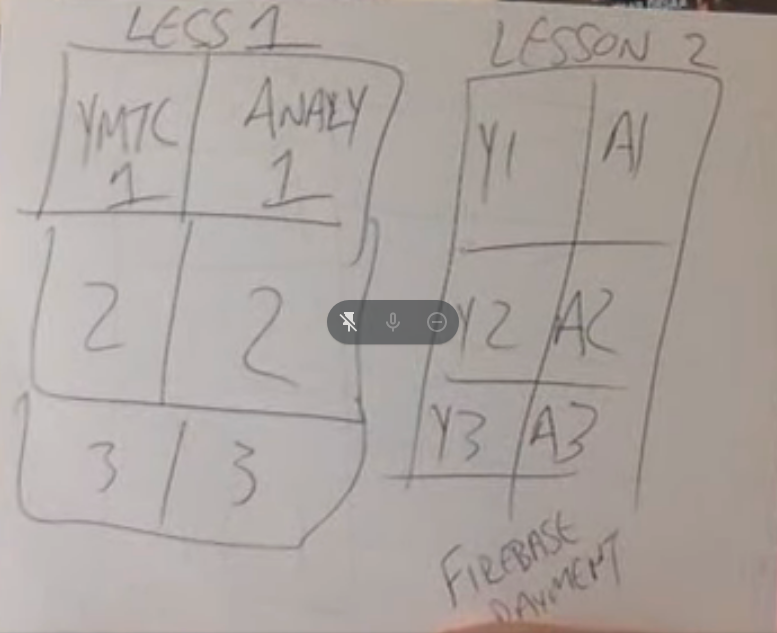 LESS 1
YMTC
1
ANALY
1
2
2
3
3
LESSON 2
Y1
A1
Y2
A2
Y3
A3
FIREBASE
PAYMENT